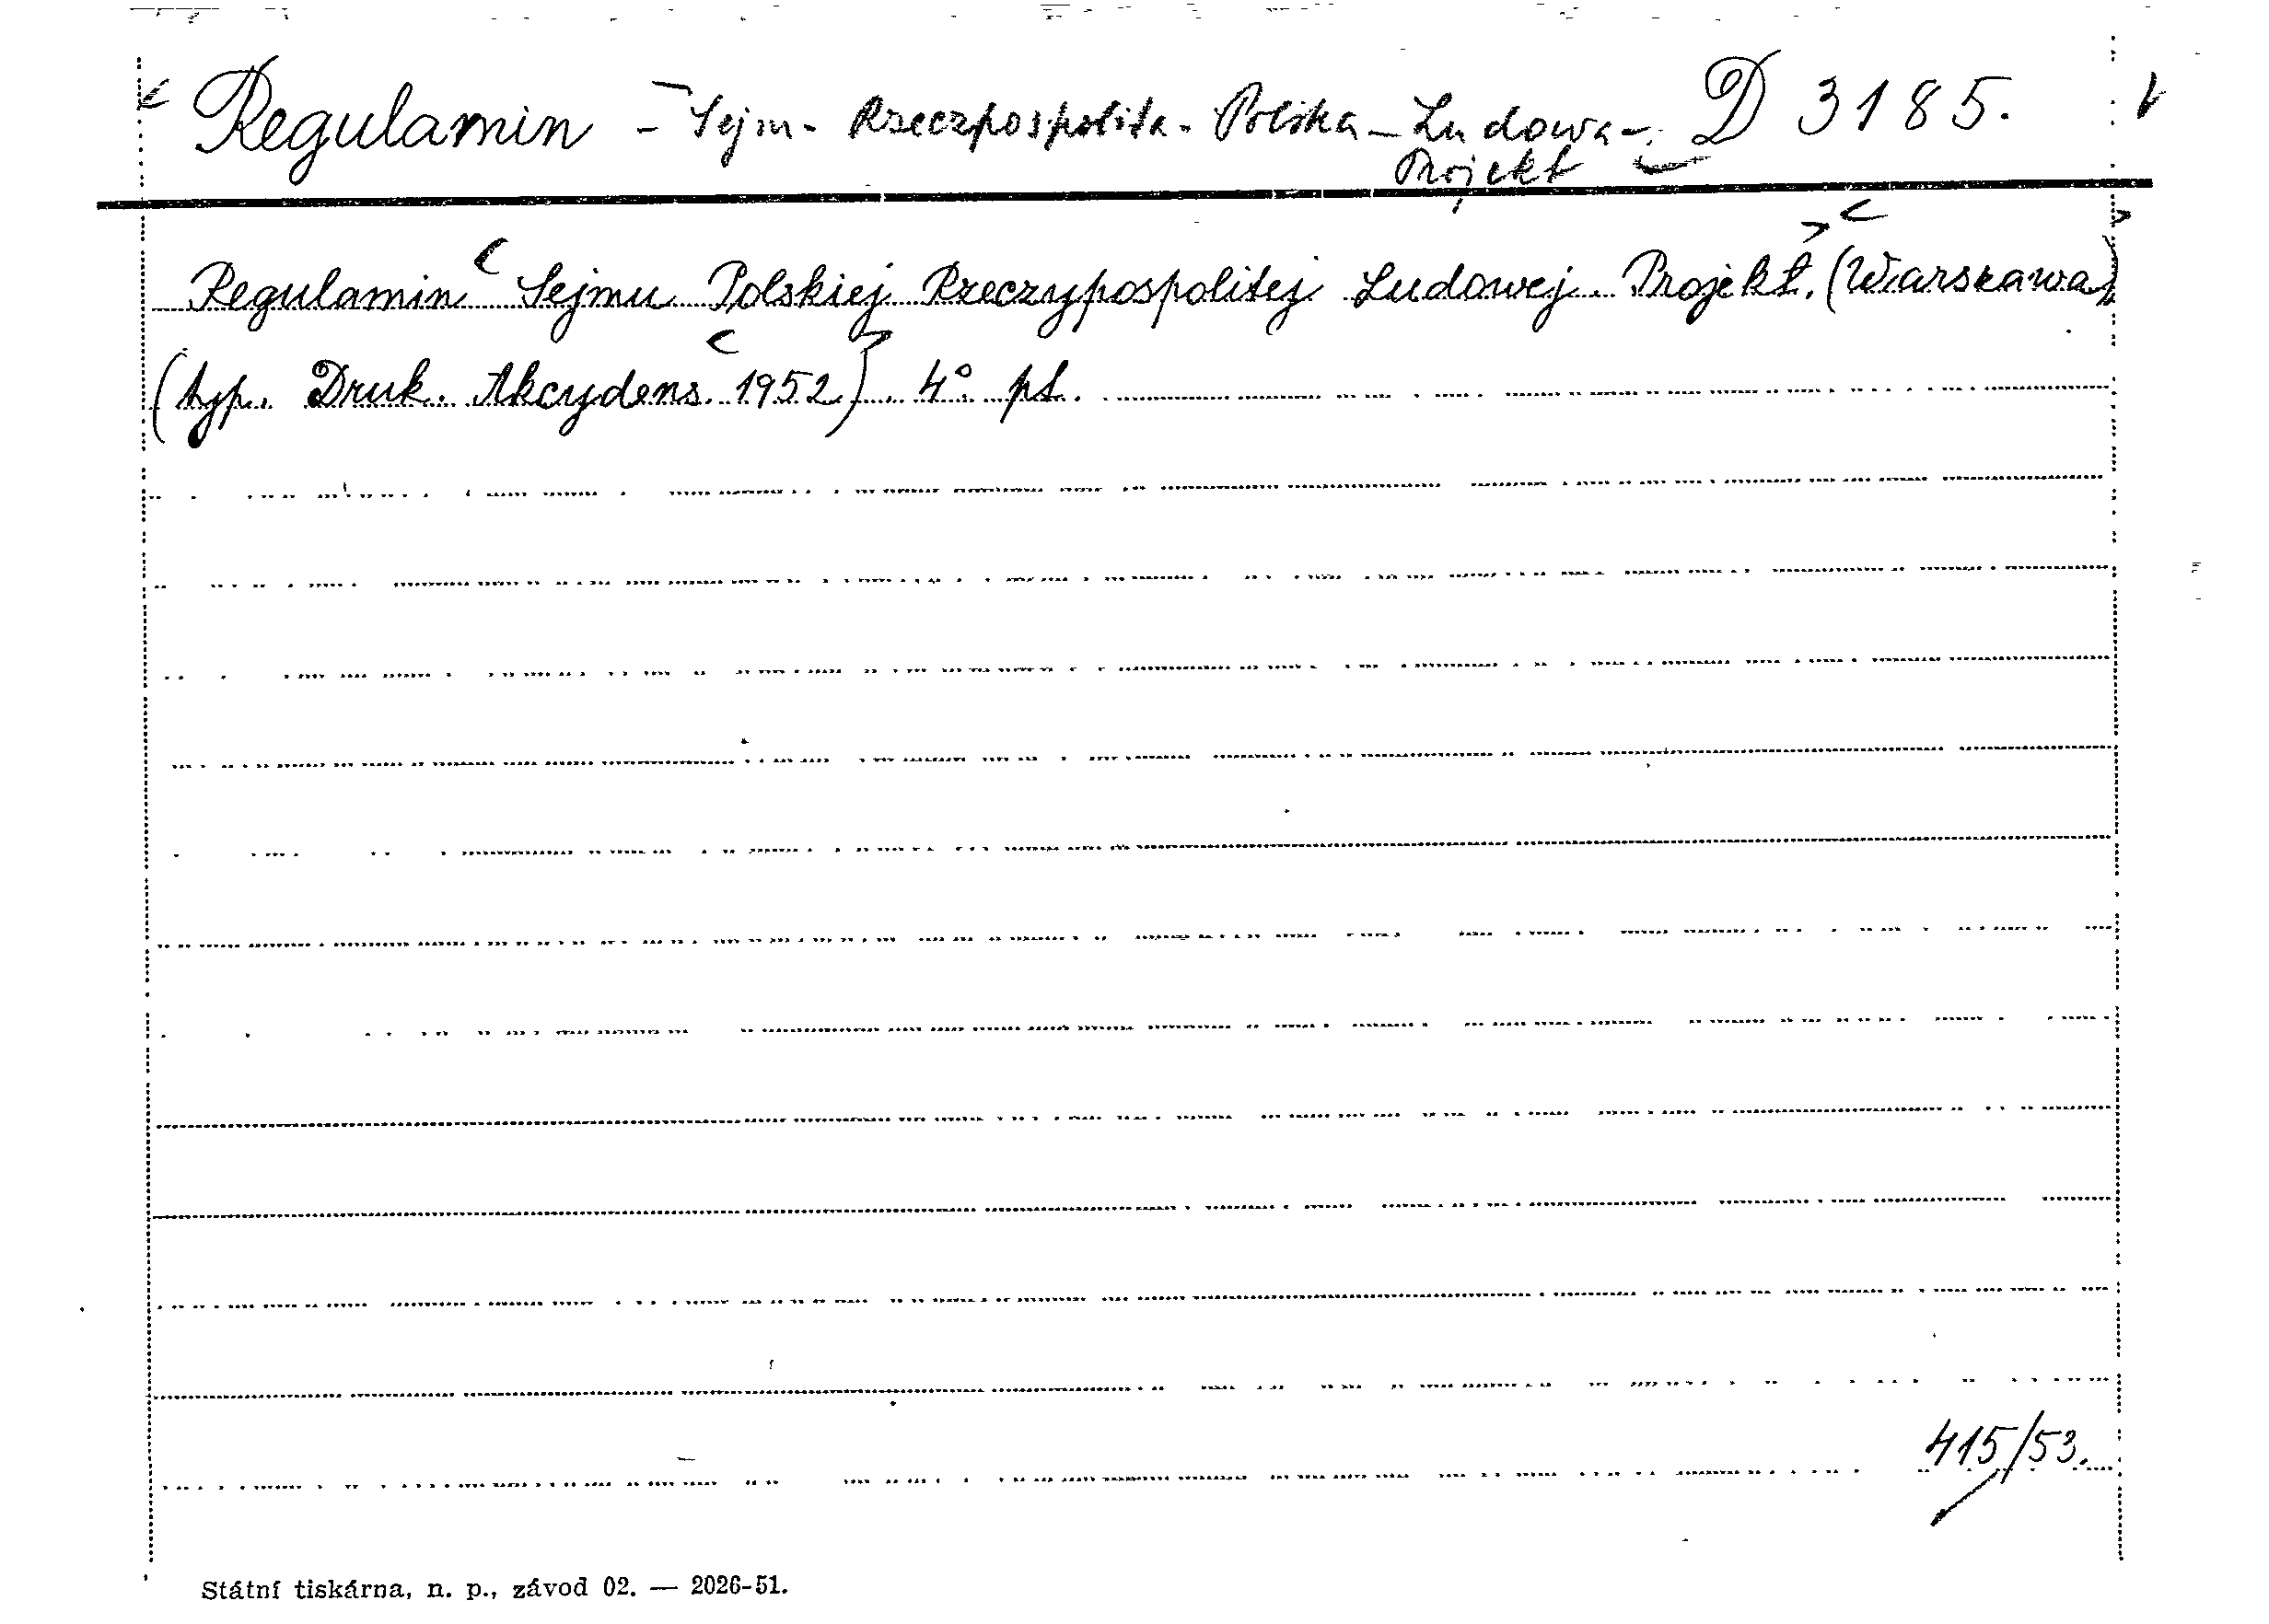 Regulamin - Sejm - Rzeczpospolita - Polska - Ludowa - D 3185.
Projekt
Regulamin Sejmu Polskiej Rzeczypospolitej Ludowej. Projekt. (Warszawa)
(typ. Druk. Akcydens. 1952). 4° pt.
415/53.
Státní tiskárna, n. p., závod 02. — 2026-51.